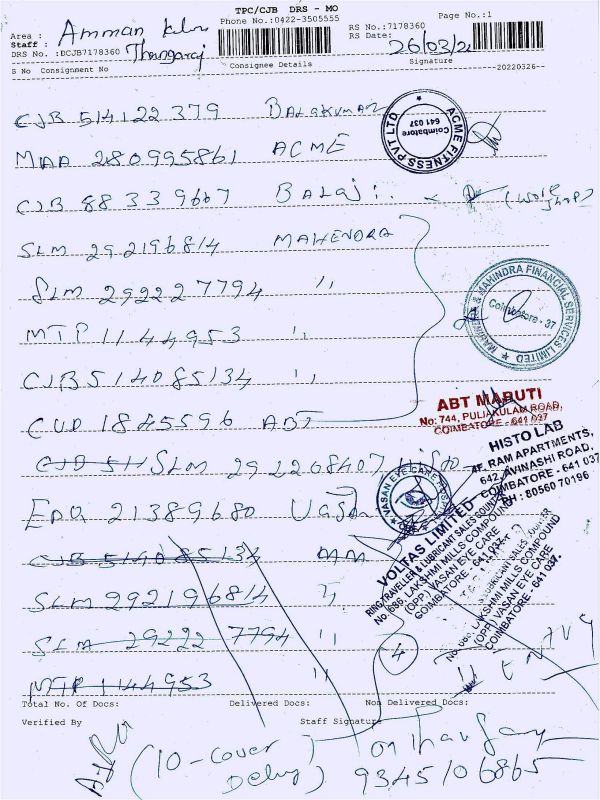 TPC/CJB DRS - MO
Phone No.:0422-3505555
Page No.:1
RS No.:7178360
RS Date: 26/03/2
Area : Amman
Staff : Thangaraj
DRS No. :DCJB7178360
S No Consignment No Consignee Details Signature
20220326--
CJB 514122379 Balakumar
ACME FITNESS PVT LTD
Coimbatore
641 037
MAA 280995861 ACME
CJB 88339667 Balaji
SLM 292196814 MAHENDRA
SLM 292227794 "
MAHINDRA & MAHINDRA FINANCIAL SERVICES LIMITED
Coimbatore - 37
MTP 1144953 "
CJB 514085134 "
CUD 1845596 ABT
ABT MARUTI
No: 744, PULIAKULAM ROAD,
COIMBATORE - 641 037
CJB 511 SLM 291268407 Histo
HISTO LAB
4F, RAM APARTMENTS,
642, AVINASHI ROAD,
COIMBATORE - 641 037
PH : 80560 70196
EDQ 21389680 Vasan
VASAN EYE CARE
VOLTAS LIMITED
RING TRAVELLER & LUBRICANT SALES COUNTER
No. 686, LAKSHMI MILLS COMPOUND
(OPP.) VASAN EYE CARE
COIMBATORE - 641 037.
LUBRICANT SALES COUNTER
No. 686, LAKSHMI MILLS COMPOUND
(OPP.) VASAN EYE CARE
COIMBATORE - 641 037.
CJB 514085134 MM
SLM 292196814 "
SLM 29222 7794 "
4
MTP 1144953
Total No. Of Docs: Delivered Docs: Non Delivered Docs:
Verified By Staff Signature
(10-Cover
Delivy)
9345106865